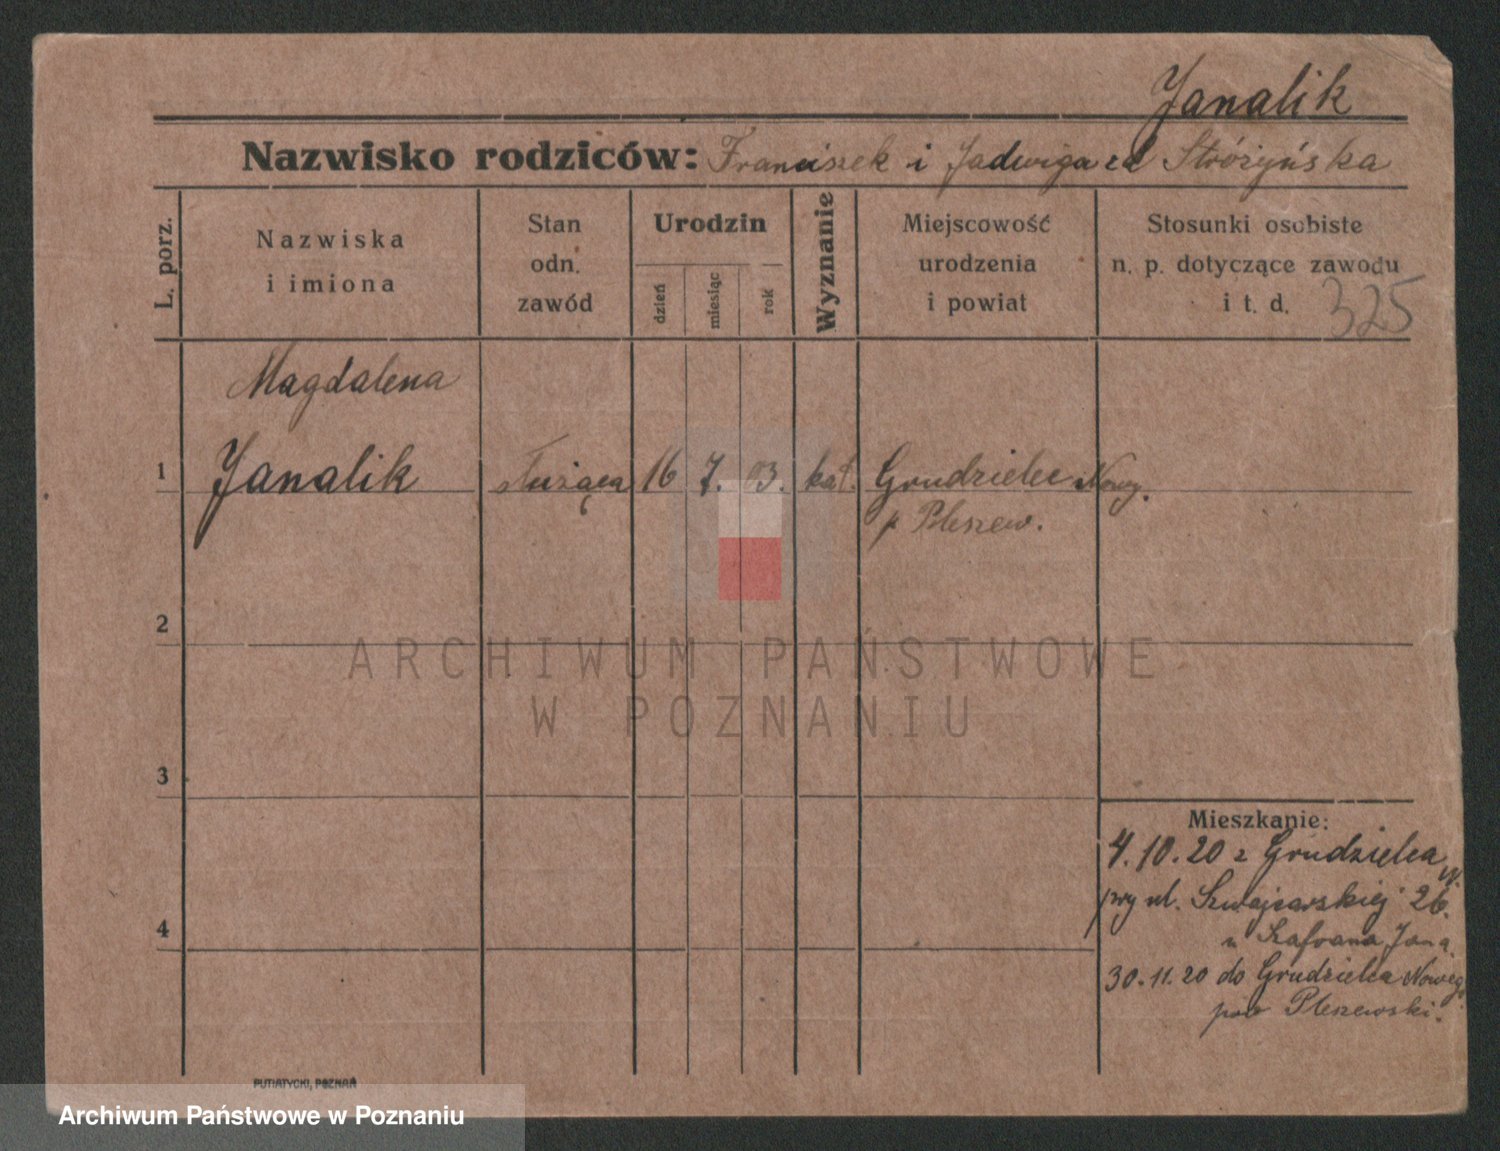 Janalik
Nazwisko rodziców: Franciszek i Jadwiga zd Stróżyńska
L. porz.
Nazwiska
i imiona
Stan
odn.
zawód
Urodzin
dzień
miesiąc
rok
Wyznanie
Miejscowość
urodzenia
i powiat
Stosunki osobiste
n. p. dotyczące zawodu
i t. d.
325
Magdalena
1 Janalik służąca 16 7. 03. kat. Grudzielec Nowy.
p Pleszew.
2
ARCHIWUM PAŃSTWOWE
W POZNANIU
3
4
Mieszkanie:
4.10.20 z Grudzielca N.
przy ul. Szwajcarskiej 26.
u Szafrana Jana.
30.11.20 do Grudzielca Nowego
pow Pleszewski.
PUTIATYCKI, POZNAŃ
Archiwum Państwowe w Poznaniu